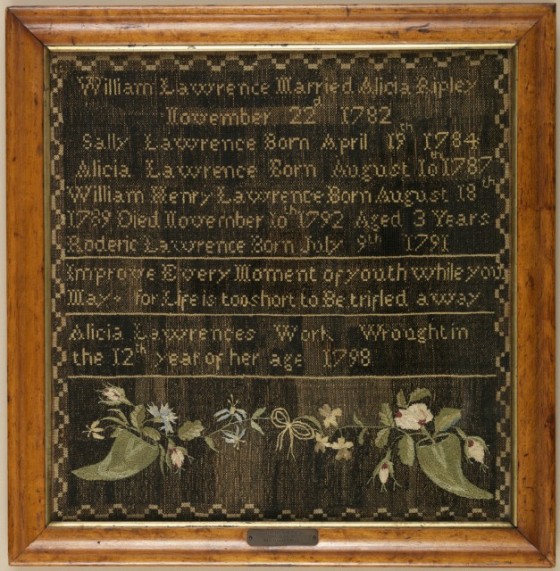 William Lawrence Married Alicia Ripley
November 22d 1782
Sally Lawrence Born April 19th 1784
Alicia Lawrence Born August 10th 1787
William Henry Lawrence Born August 18th
1789 Died November 10th 1792 Aged 3 Years
Roderic Lawrence Born July 9th 1791
Improve Every Moment of youth while you
May for Life is too short to Be trifled away
Alicia Lawrences Work Wrought in
the 12th year of her age 1798